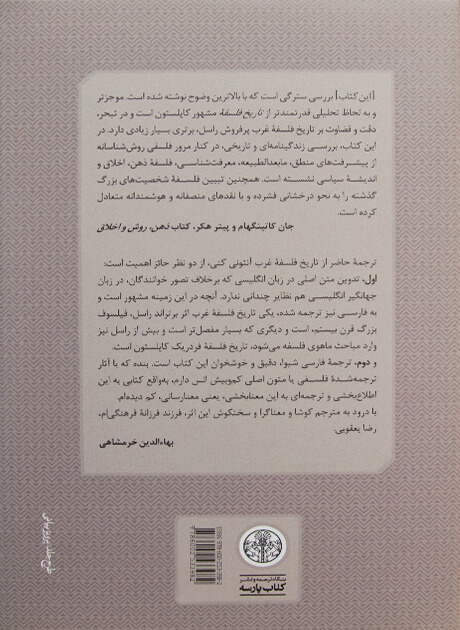 [این کتاب] بررسی سترگی است که با بالاترین وضوح نوشته شده است. موجزتر
و به لحاظ تحلیلی قدرتمندتر از تاریخ فلسفهٔ مشهور کاپلستون است و در تبحر،
دقت و قضاوت بر تاریخ فلسفهٔ غرب پرفروش راسل، برتری بسیار زیادی دارد. در
این کتاب، بررسی زندگینامه‌ای و تاریخی، در کنار مرور فلسفی روش‌شناسانه
از پیشرفت‌های منطق، مابعدالطبیعه، معرفت‌شناسی، فلسفهٔ ذهن، اخلاق و
اندیشهٔ سیاسی نشسته است. همچنین تبیین فلسفهٔ شخصیت‌های بزرگ
گذشته را به نحو درخشانی فشرده و با نقدهای منصفانه و هوشمندانه متعادل
کرده است.
جان کاتینگهام و پیتر هکر، کتاب ذهن، روش و اخلاق
ترجمهٔ حاضر از تاریخ فلسفهٔ غرب آنتونی کنی، از دو نظر حائز اهمیت است:
اول، تدوین متن اصلی در زبان انگلیسی که برخلاف تصور خوانندگان، در زبان
جهانگیر انگلیسی هم نظایر چندانی ندارد. آنچه در این زمینه مشهور است و
به فارسی نیز ترجمه شده، یکی تاریخ فلسفهٔ غرب اثر برتراند راسل، فیلسوف
بزرگ قرن بیستم، است و دیگری که بسیار مفصل‌تر است و بیش از راسل نیز
وارد مباحث ماهوی فلسفه می‌شود، تاریخ فلسفهٔ فردریک کاپلستون است.
و دوم، ترجمهٔ فارسی شیوا، دقیق و خوشخوان این کتاب است. بنده که با آثار
ترجمه‌شدهٔ فلسفی یا متون اصلی کم‌وبیش انس دارم، به‌واقع کتابی به این
اطلاع‌بخشی و ترجمه‌ای به این معنابخشی، یعنی معنارسانی، کم دیده‌ام.
با درود به مترجم کوشا و معناگرا و سختکوش این اثر، فرزند فرزانهٔ فرهنگی‌ام،
رضا یعقوبی.
بهاءالدین خرمشاهی
طرح جلد: پرویز بیانی
بنگاه ترجمه و نشر
کتاب پارسه